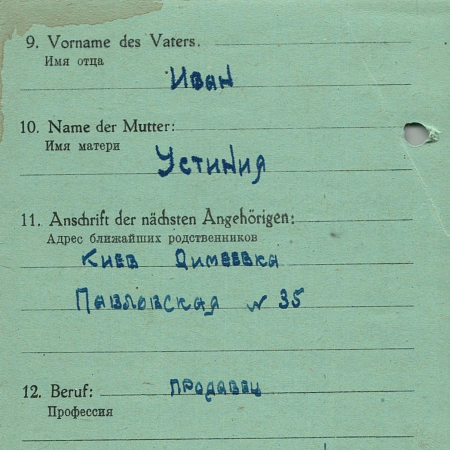 9. Vorname des Vaters.
Имя отца
Иван
10. Name der Mutter:
Имя матери
Устиния
11. Anschrift der nächsten Angehörigen:
Адрес ближайших родственников
Киев Димеевка
Павловская № 35
12. Beruf: продавец
Профессия